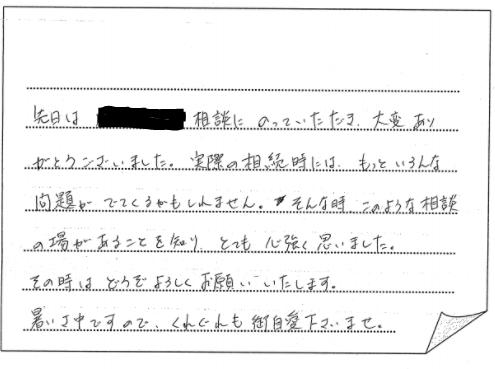 先日は 相談にのっていただき、大変あり
がとうございました。実際の相続時には、もっといろんな
問題がでてくるかもしれません。そんな時、このような相談
の場があることを知り、とても心強く思いました。
その時はどうぞよろしくお願いいたします。
暑い中ですので、くれぐれも御自愛下さいませ。